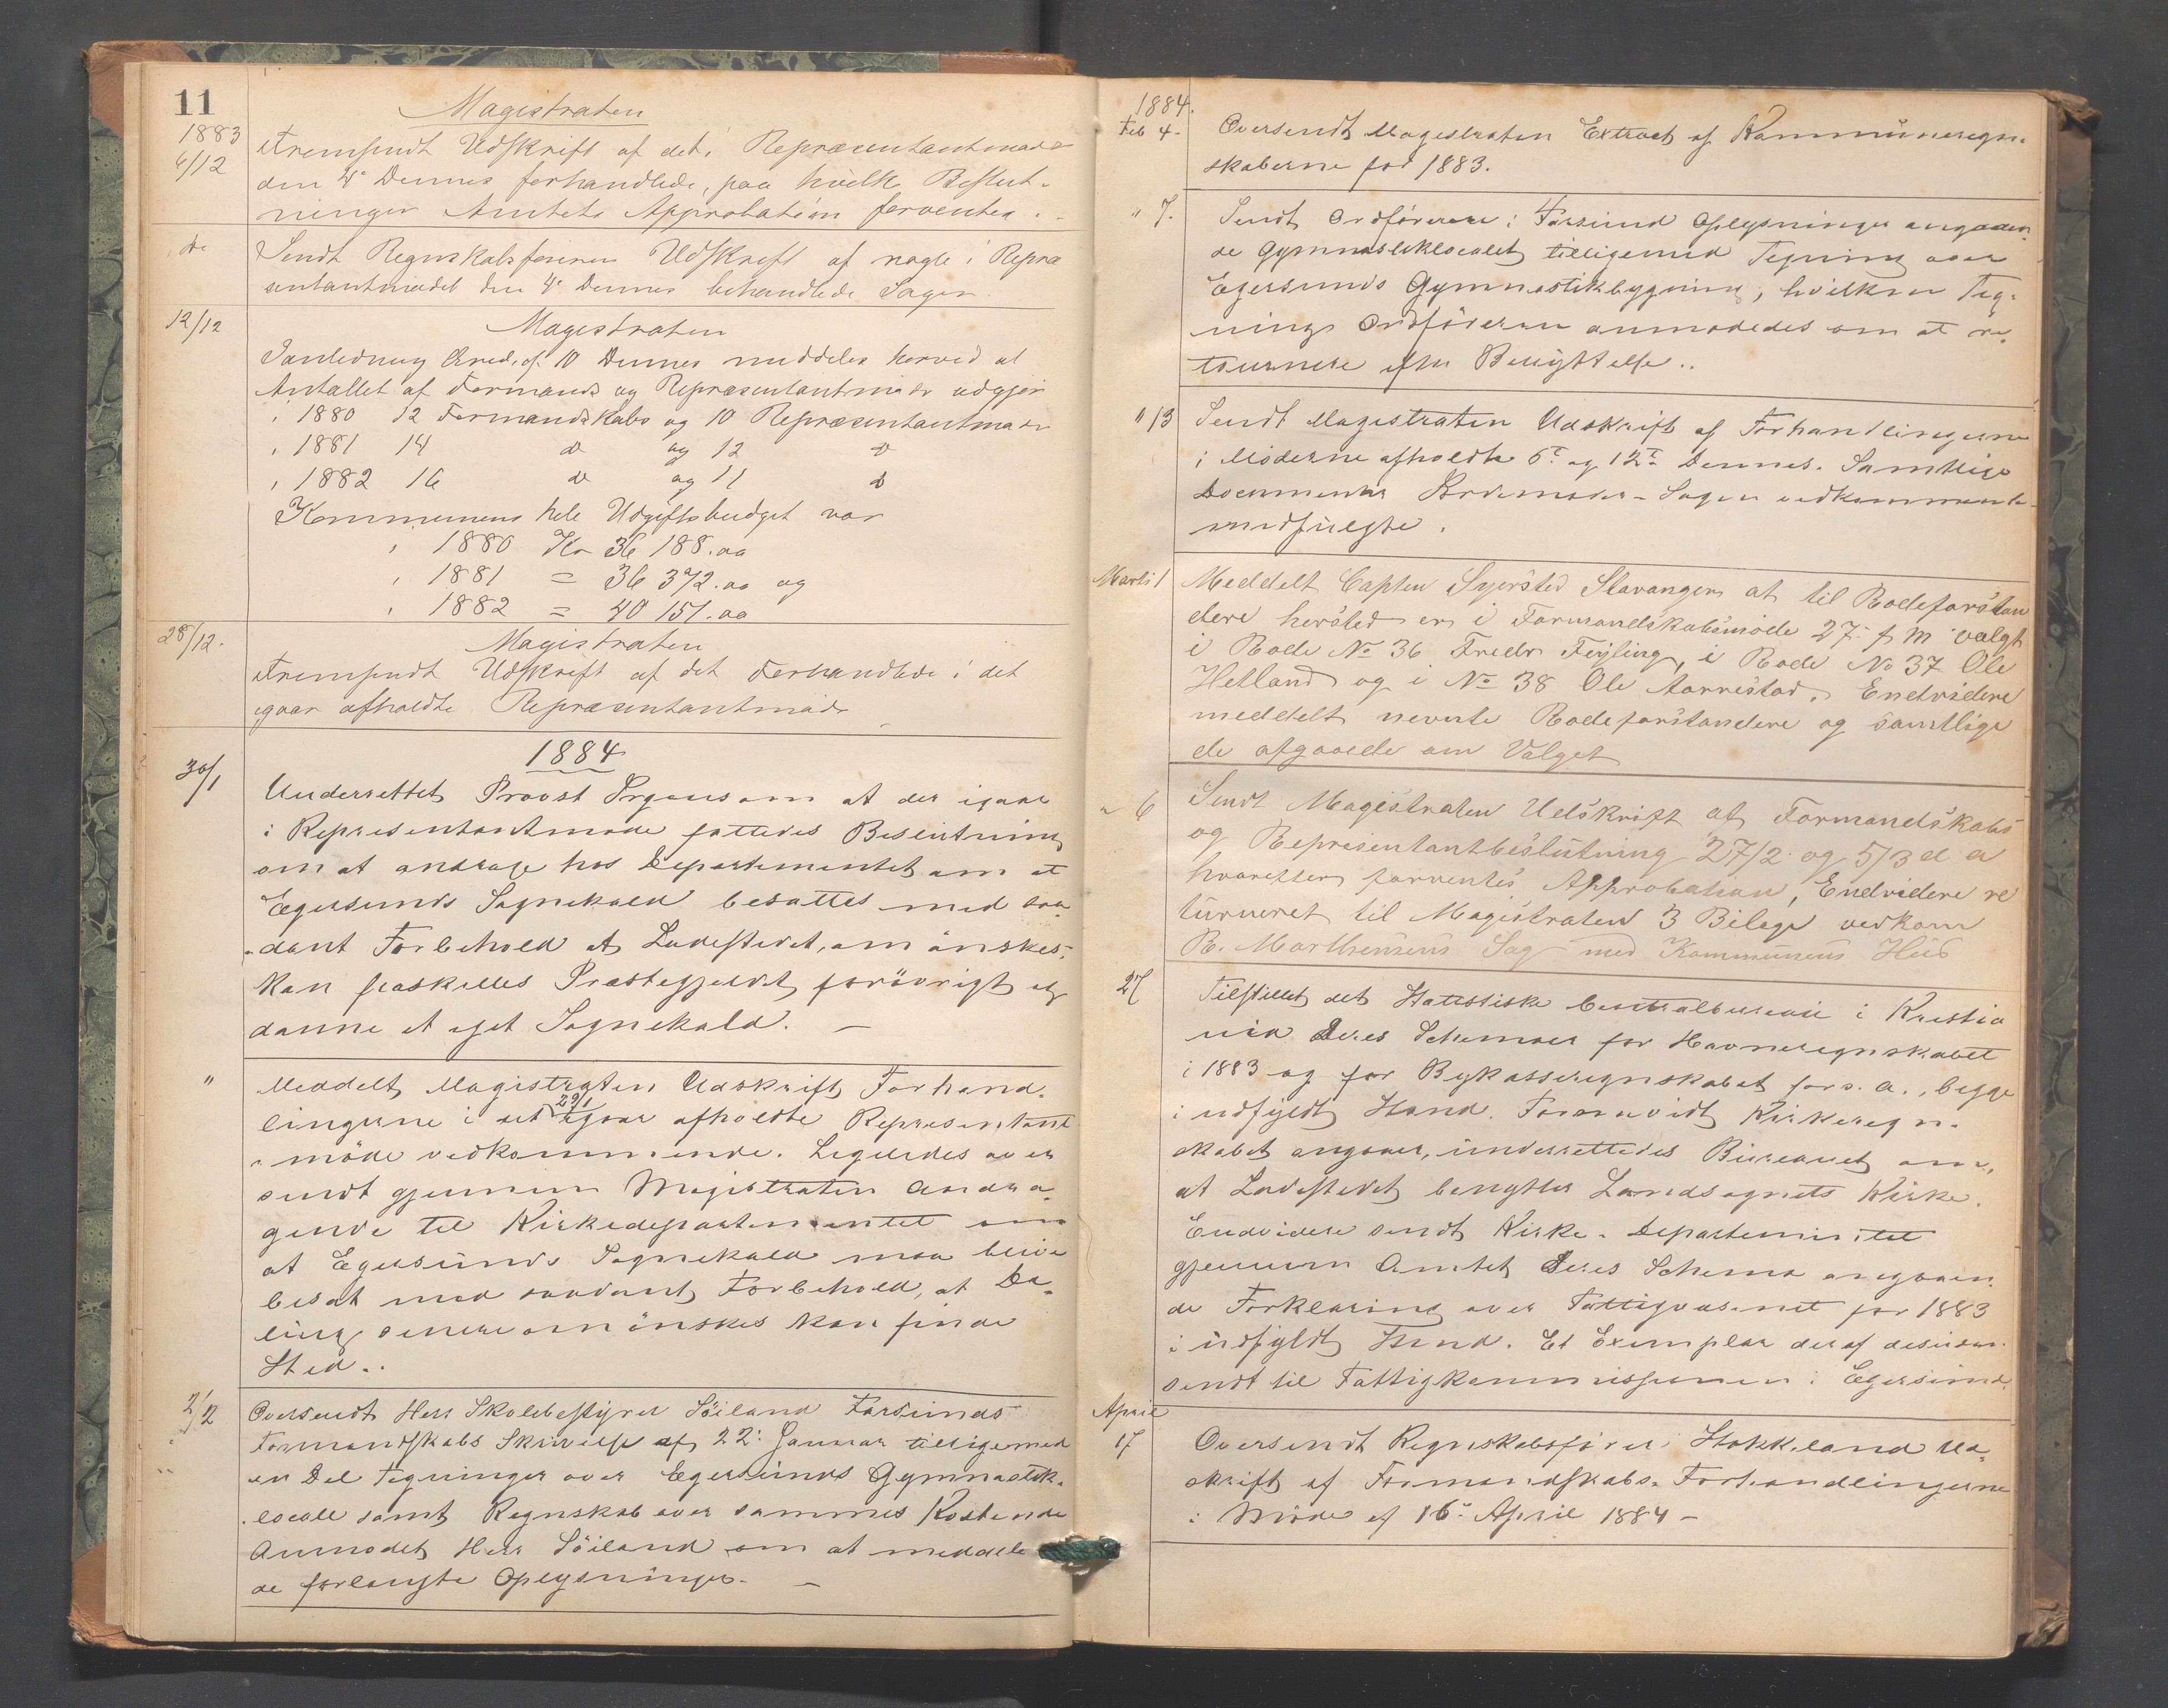 11
Magistraten
1883
6/12
Fremsendt Udskrift af det i Repræsentantmøde
den 4de Dennes forhandlede, paa hvilke Beslut-
ninger Amtets Approbation forventes.
do
Sendt Regnskabsføreren Udskrift af nogle i Repræ
sentantmødet den 4de Dennes behandlede Sager
12/12
Magistraten
I anledning Ered. af 10 Dennes meddeles herved at
Antallet af Formands og Repræsentantmøder udgjør
i 1880 12 Formandskabs og 10 Repræsentantmøder
i 1881 14 do og 12 do
i 1882 16 do og 11 do
Kommunens hele Udgiftsbudget var
i 1880 Kr 36 188.00
i 1881 = 36 372.00 og
i 1882 = 40 151.00
28/12.
Magistraten
Fremsendt Udskrift af det Forhandlede i det
igaar afholdte Repræsentantmøde
1884
30/1
Underrettet Provst Jrgens om at der igaar
i Representantmøde fattedes Beslutning
om at andrage hos Departementet om at
Egersunds Sognekald besættes med saa
dant Forbehold at Ladestedet, om ønskes,
kan fraskilles Præstegjeldet forøvrigt og
danne et eget Sognekald. —
"
Meddelt Magistraten Udskrift Forhand-
lingerne i det igaar 29/1 afholdte Representant
møde vedkommende. Ligeledes over
sendt gjennem Magistraten Andra-
gende til Kirkedepartementet om
at Egersunds Sognekald maa blive
besat med saadant Forbehold, at De-
ling senere om ønskes kan finde
Sted..
2/2
Oversendt Herr Skolebestyrer Söiland Farsunds
Formandskabs Skrivelse af 22: Januar tilligemed
en Del Tegninger over Egersunds Gymnastik-
locale samt Regnskab over sammes Kostende
Anmodet Herr Söiland om at meddele
de forlangte Oplysninger. —
1884.
Feb 4.
Oversendt Magistraten Extract af Kommuneregn-
skaberne for 1883.
" 7.
Sendt Ordföreren i Farsund Oplysninger angaaen
de Gymnastiklocalet tilligemed Tegning over
Egersunds Gymnastikbygning, hvilken Teg-
ning Ordföreren anmodedes om at re-
tournere efter Benyttelse..
" 13
Sendt Magistraten Udskrift af Forhandlingerne
i Møderne afholdte 6te og 12te Dennes. Samtlige
Documenter - Sagen vedkommende
medfulgte.
Marts 1
Meddelt Capten Syersted Stavanger at til Rodeforstan
dere hersted er i Formandskabsmöde 27. f M valgt
i Rode No 36 Fredr Feyling, i Rode No 37 Ole
Hetland og i No 38 Ole Aarrestad. Endvidere
meddelt nevnte Rodeforstandere og samtlige
de afgaaede om Valget
" 6
Sendt Magistraten Udskrift af Formandskabs
og Representantbeslutning 27/2 og 5/3 d a
hvorefter forventes Approbation, Endvidere re
turneret til Magistraten 3 Bilage vedkom
R. Marthensens Sag med Kommunens Hus
27
Tilstillet det Statistiske Centralbureau i Kristia
nia Deres Schemaer for Havneregnskabet
i 1883 og for Bykasseregnskabet for s. a., begge
i udfyldt Stand. Forsaavidt Kirkeregn-
skabet angaaer, underrettedes Bureauet om,
at Ladestedet benytter Landsognets Kirke.
Endvidere sendt Kirke-Departementet
gjennem Amtet Deres Schema angaaen
de Forklaring over Fattigvæsenet for 1883
i udfyldt Stand. Et Exemplar deraf desuden
sendt til Fattigkommissionen i Egersund.
April
17
Oversendt Regnskabsförer Stokkeland Ud-
skrift af Formandskabs-Forhandlingerne
i Møde af 16de April 1884 —